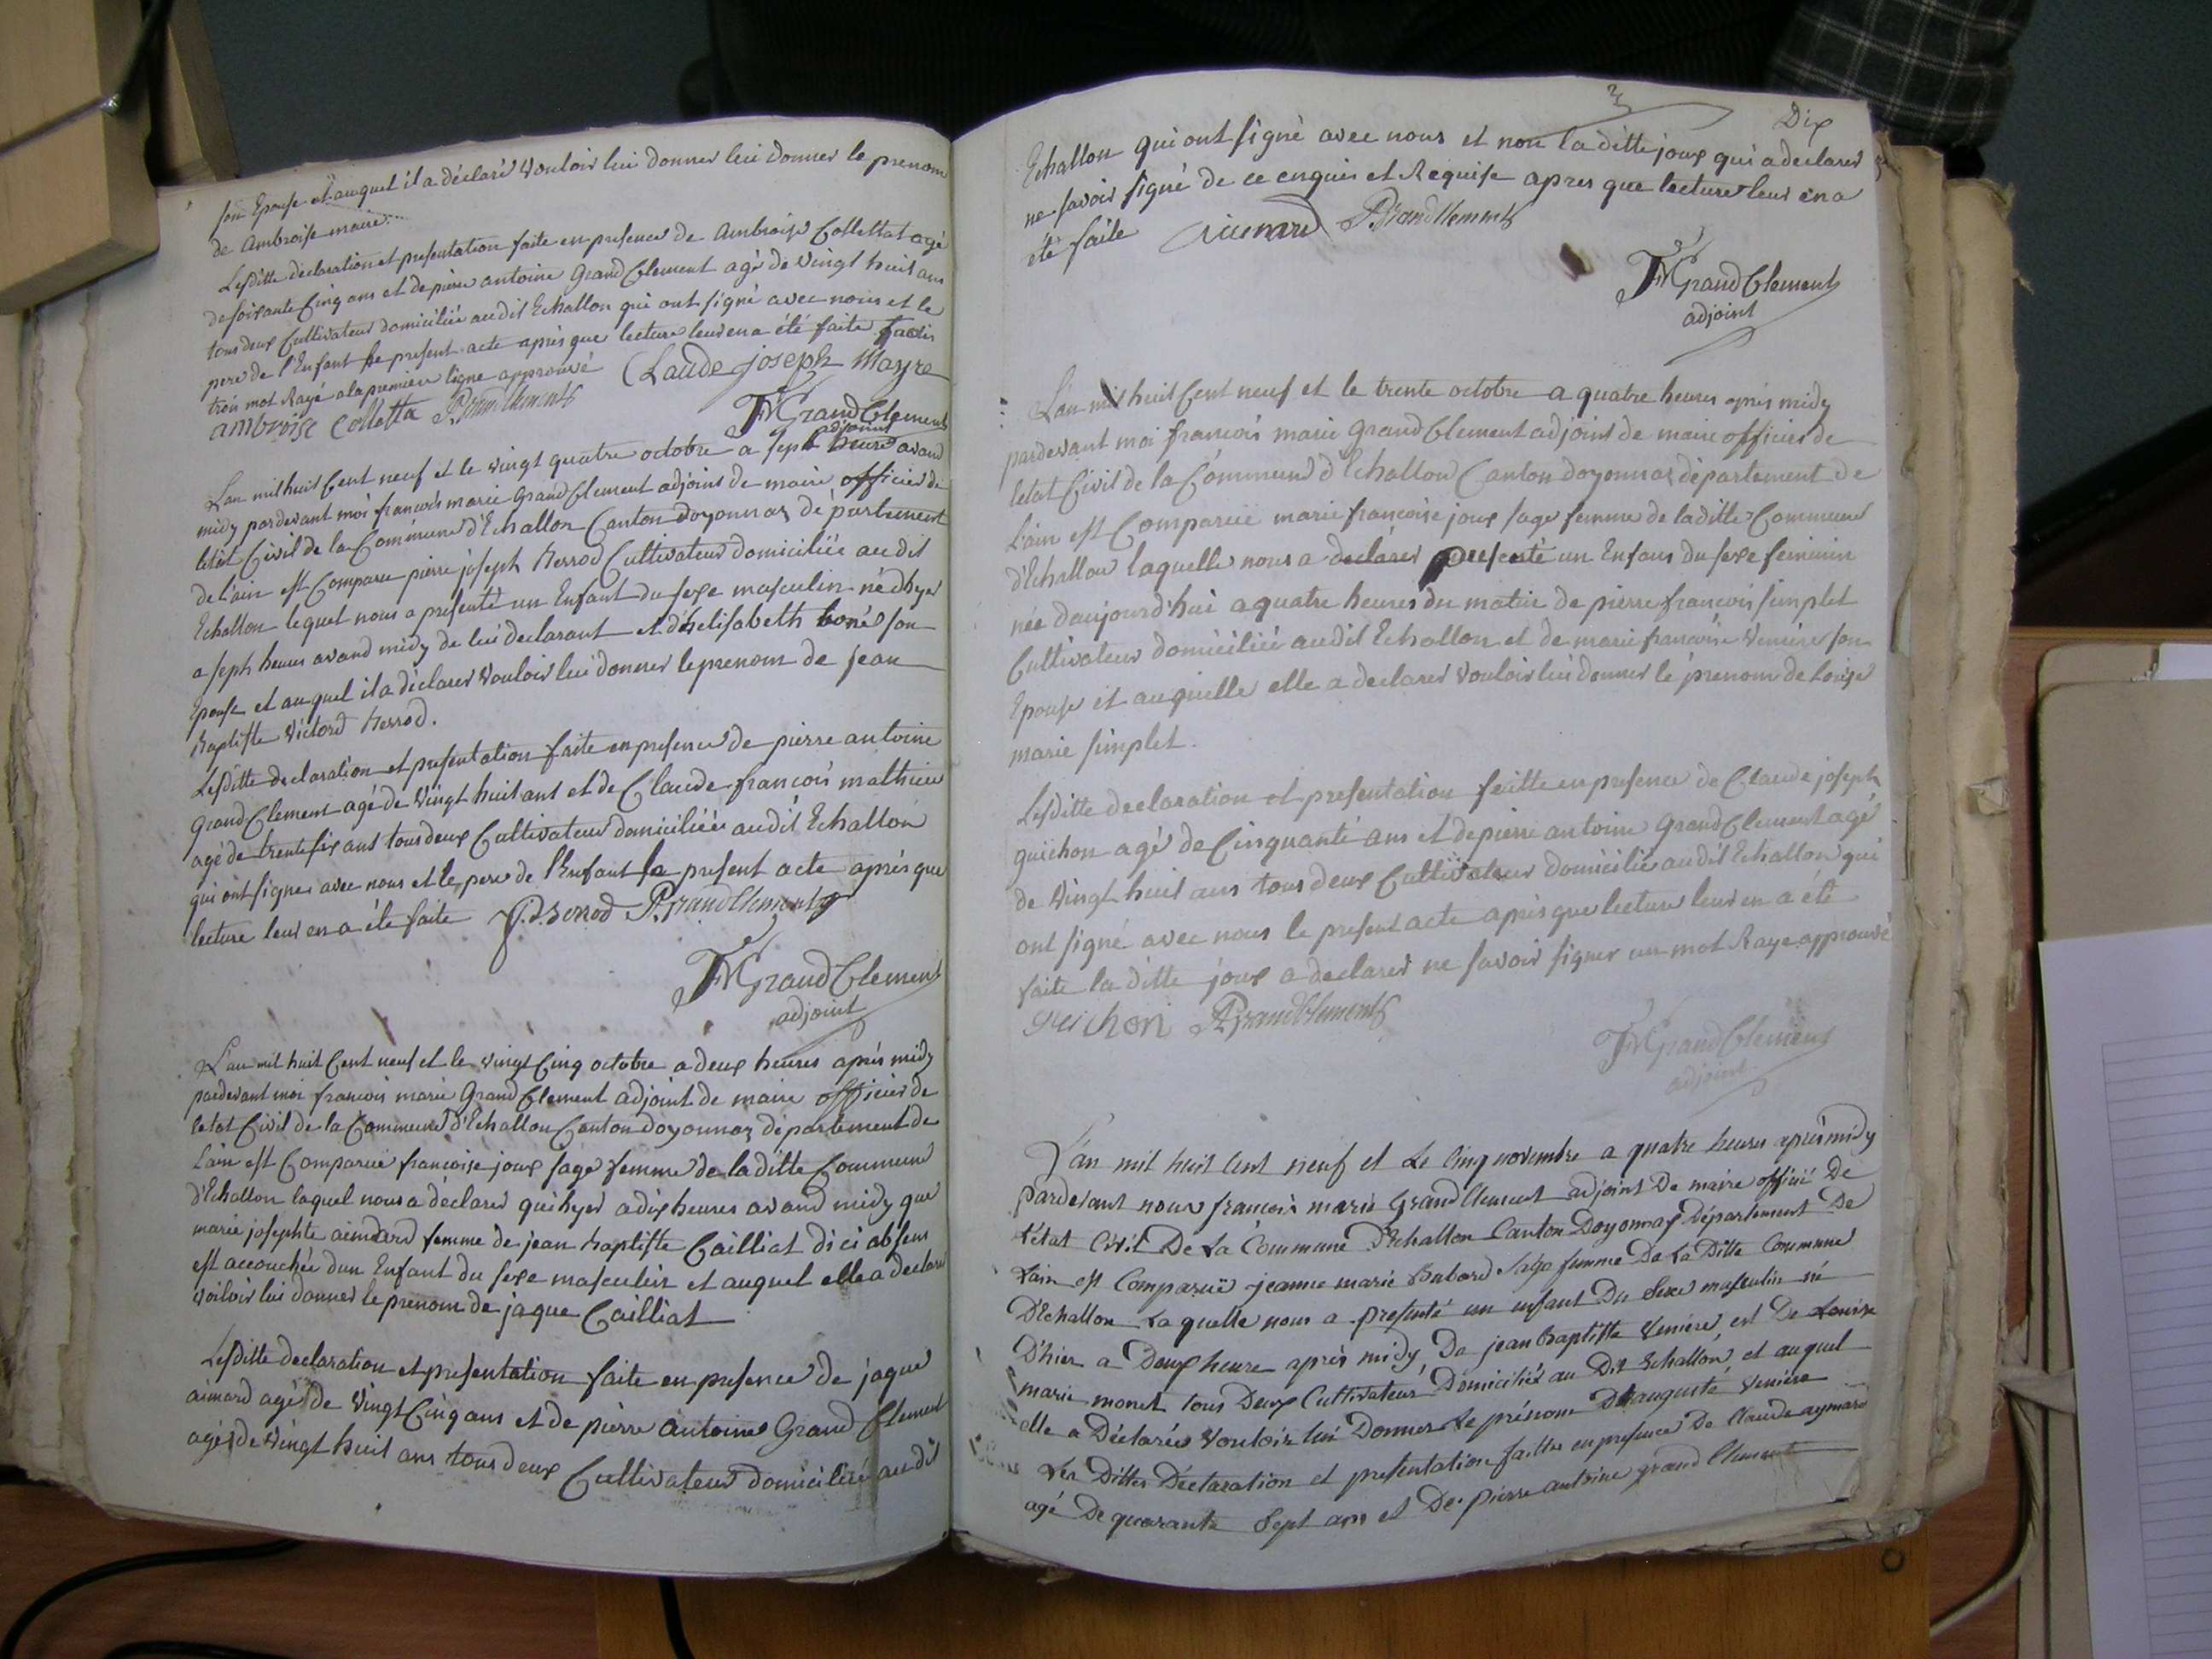 son Epouse et auquel il a déclaré vouloir lui donner lui donner le prenom
de Ambroise maire.
Lesditte déclaration et presentation faite en presence de Ambroise Collettat agé
de soixante Cinq ans et de pierre antoine Grand Clement agé de vingt huit ans
tous deux Cultivateur domiciliée audit Echallon qui ont signé avec nous et le
pere de l'Enfant le present acte après que lecture leur en a été faite
trois mot Rayé a la premiere ligne approuvé Claude joseph Mayre
ambroise Colletta P. Grand Clement
FM Grand Clement
adjoint
L'an mil huit Cent neuf et le vingt quatre octobre a seph heures avand
midy pardevant moi francois marie Grand Clement adjoint de maire officier de
letat Civil de la Commune d'Echallon Canton doyonnaz département
de l'ain est Comparu pierre joseph herrod Cultivateur domiciliée audit
Echallon lequel nous a presenté un Enfant du sexe masculin né dhyer
a seph heures avand midy de lui declarant et d'elisabeth boné son
Epouse et auquel il a déclarer vouloir lui donner le prenom de jean
baptiste victord herrod.
Lesditte declaration et presentation faite en presence de pierre antoine
Grand Clement agé de vingt huit ant et de Claude francois mathieu
agé de trente six ans tous deux Cultivateur domiciliée audit Echallon
qui ont signer avec nous et le pere de l'Enfant le present acte après que
lecture leur en a été faite P. J. herrod P. Grand Clement
FM Grand Clement
adjoint
L'an mil huit Cent neuf et le vingt Cinq octobre a deux heures après midy
pardevant moi francois marie Grand Clement adjoint de maire officier de
letat Civil de la Commune d'Echallon Canton doyonnaz département de
L'ain est Comparuë francoise joux sage femme de laditte Commune
d'Echallon laquel nous a déclarer qui hyer a dix heures avand midy que
marie josephte aimard femme de jean baptiste Cailliat dici absens
est accouchée dun Enfant du sexe masculin et auquel elle a declaré
voiloir lui donner le prenom de jaque Cailliat
Lesditte declaration et presentation faite en presence de jaque
aimard agé de vingt Cinq ans et de pierre antoine Grand Clement
agé de vingt huit ans tous deux Cultivateur domiciliée audit
Dix
Echallon qui ont signé avec nous et non la ditte joux qui a declarer
ne savoir signé de ce enquis et Requise apres que lecture leur en a
été faite P. Grand Clement
FM Grand Clement
adjoint
L'an mil huit Cent neuf et le trente octobre a quatre heures après midy
pardevant moi francois marie Grand Clement adjoint de maire officier de
letat Civil de la Commune d'Echallon Canton doyonnaz département de
L'ain est Comparuë marie francoise joux sage femme de laditte Commune
d'Echallon laquelle nous a declarer presenté un Enfans du sexe feminin
née daujourd'hui a quatre heures du matin de pierre francois simplet
Cultivateur domiciliée audit Echallon et de marie francoise Veniére son
Epouse et auquelle elle a declarer vouloir lui donner le prenom de Louise
marie simplet.
Lesditte declaration et presentation faitte en presence de Claude joseph
guichon agé de Cinquante ans et de pierre antoine Grand Clement agé
de vingt huit ans tous deux Cultivateur domicilié audit Echallon qui
ont signé avec nous le present acte après que lecture leur en a été
faite la ditte joux a declarer ne savoir signer un mot Raye approuvé
guichon P Grand Clement
FM Grand Clement
adjoint
L'an mil huit Cent neuf et Le Cinq novembre a quatre heures après midy
Pardevant nous francois marie Grand Clement adjoint De maire officié De
L'état Civil De La Commune D'Echallon Canton Doyonnax Département De
Lain est Comparuë jeanne marie Babord Sage femme De La Ditte Commune
D'Echallon Laquelle nous a presenté un enfant Du Sexe masculin né
D'hier a Deux heure après midy De jean Baptiste Veniére, et De Louise
marie monet tous Deux Cultivateurs Domicilié au Dit Echallon, et auquel
elle a Déclarée Vouloir lui Donner Le prénom D'auguste Veniére
Les Dittes Déclaration et presentation faittes en presence De Claude aymard
agé De quarante Sept ans et De pierre antoine grand Clement